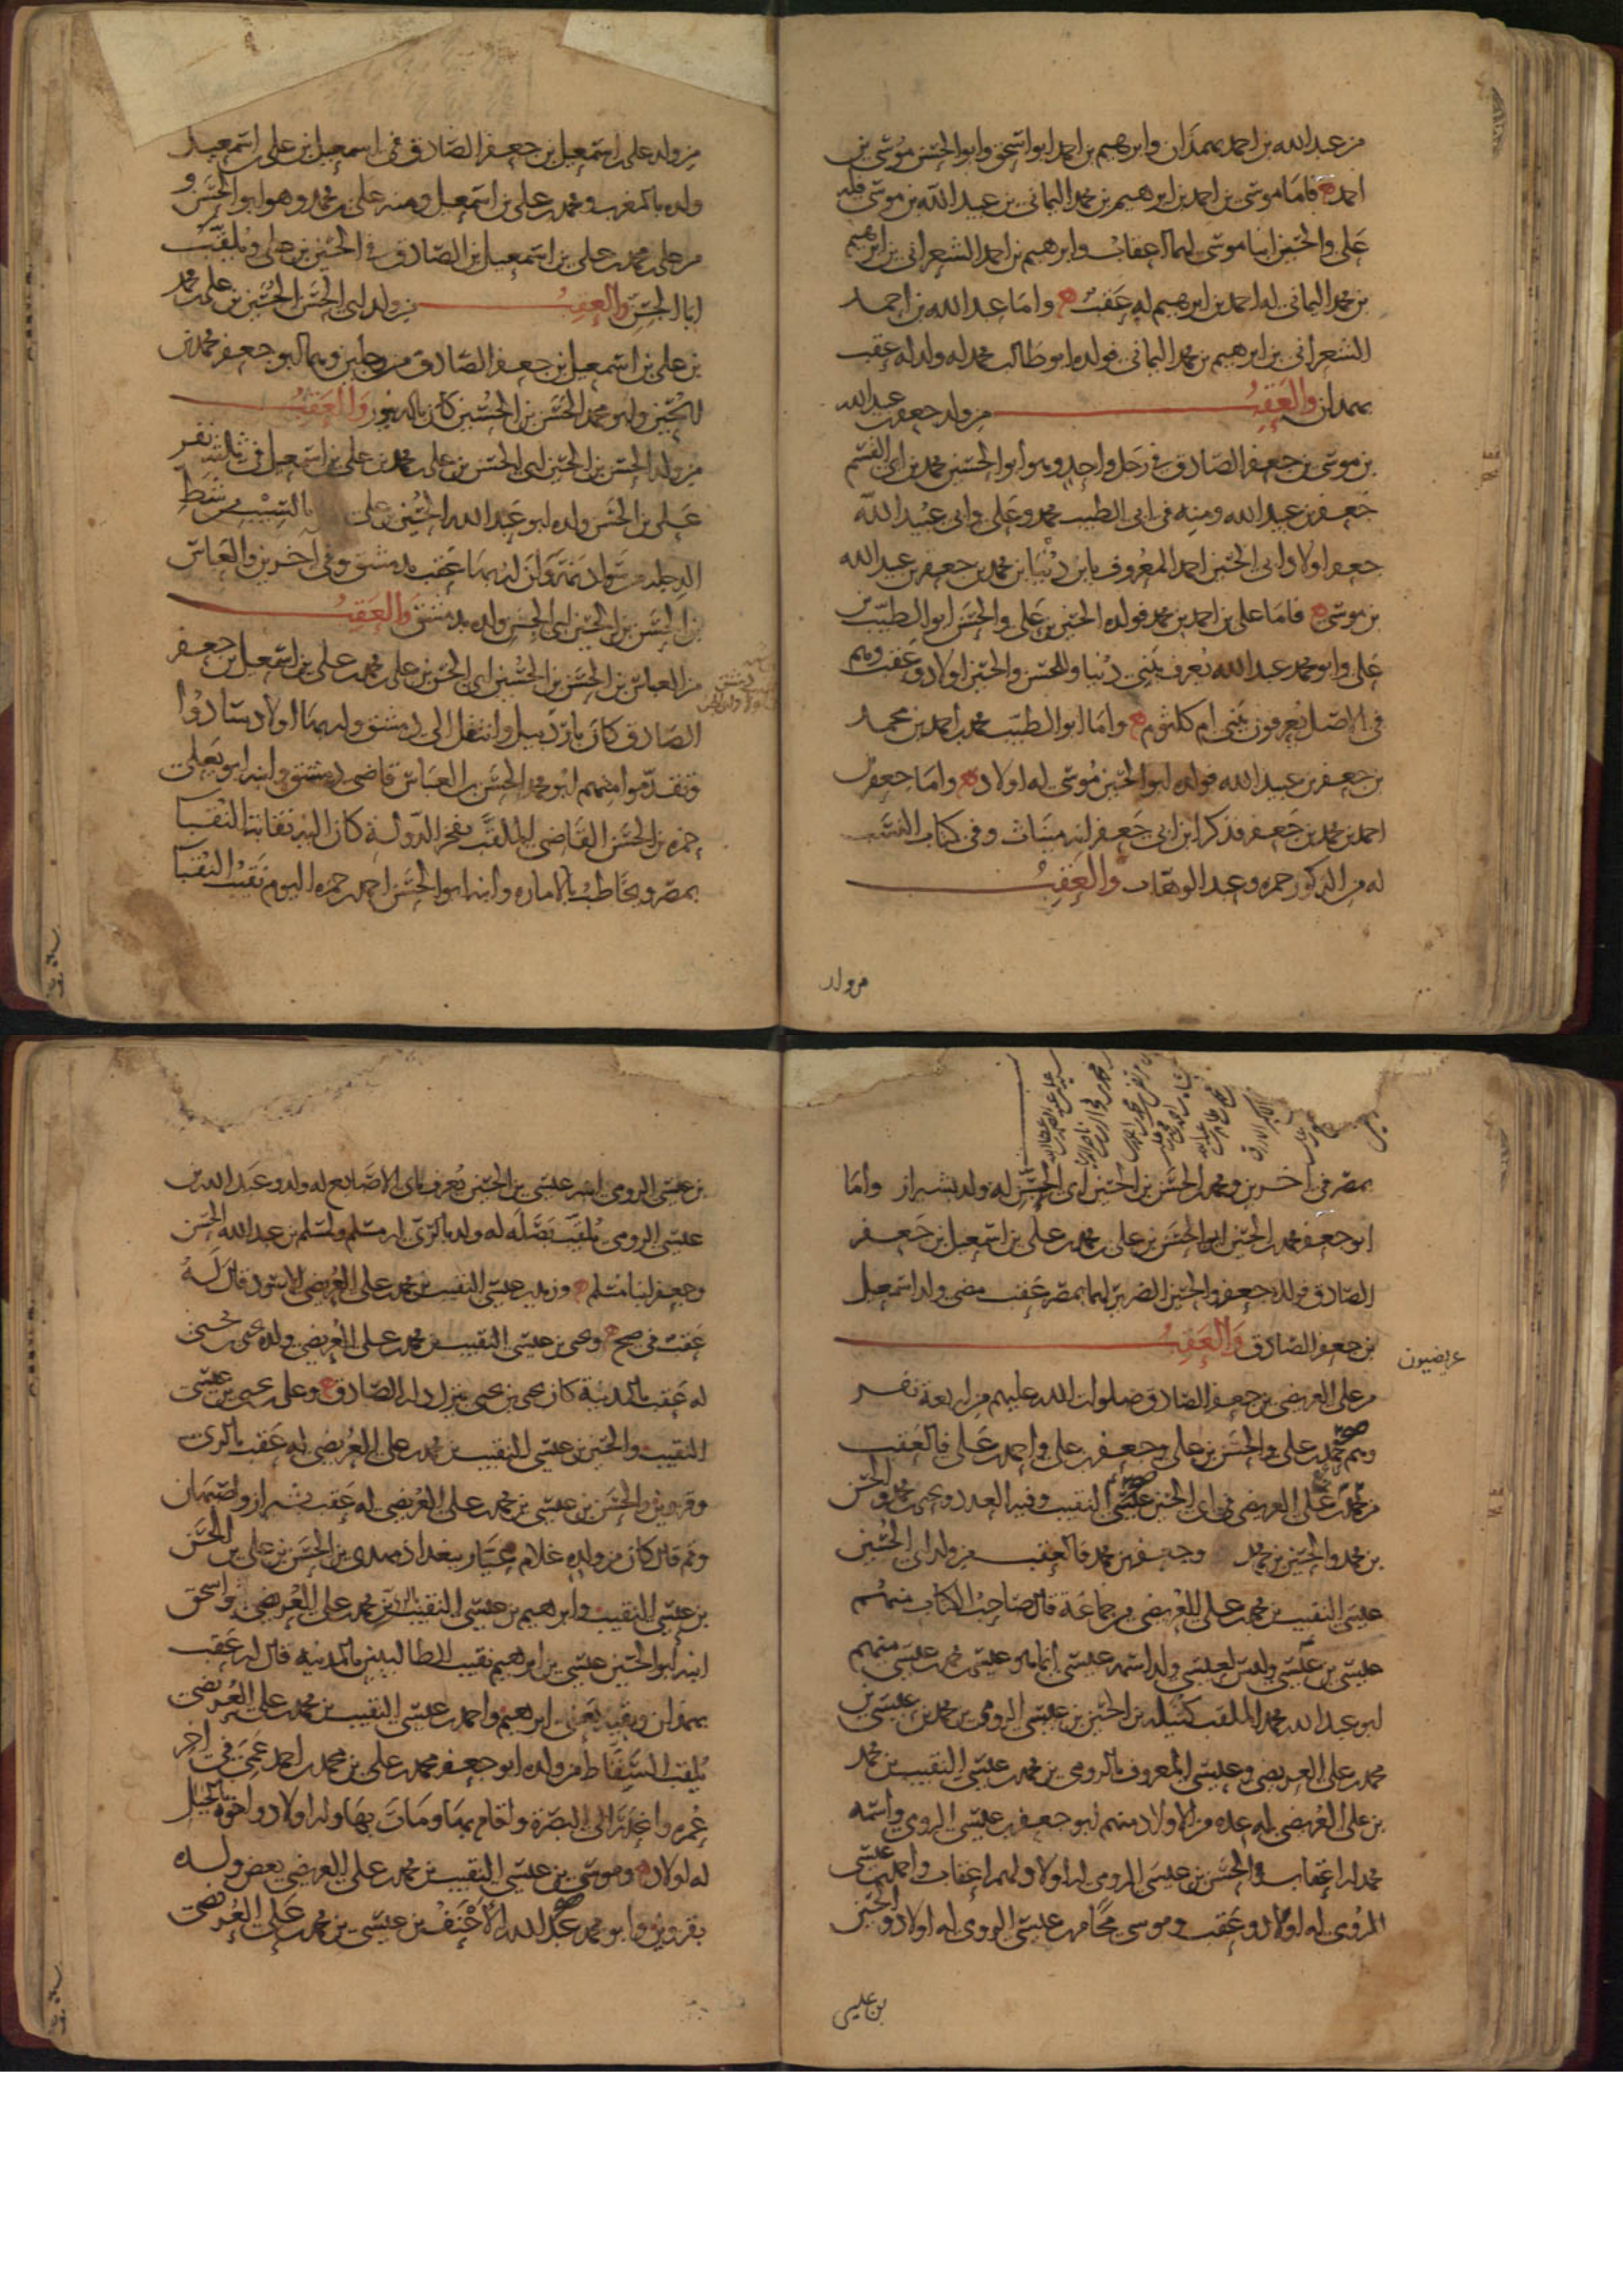 من عبد الله بن احمد بهمذان وابرهيم بن احمد ابو اسحق وابو الحسن موسى بن
احمد ه فاما موسى بن احمد بن ابرهيم بن محمد اليماني بن عبيد الله بن موسى فله
علي والحسين ابنا موسى لهما اعقاب وابرهيم بن احمد الشعراني بن ابرهيم
بن محمد اليماني له احمد بن ابرهيم له عقب ه واما عبد الله بن احمد
الشعراني بن ابرهيم بن محمد اليماني فولده ابو طالب محمد له ولد له عقب
بهمدان والعقب من ولد جعفر بن عبيد الله
بن موسى بن جعفر الصادق في رجل واحد وهو ابو الحسين محمد بن ابي القسم
جعفر بن عبيد الله ومنه في ابي الطيب محمد وعلي وابي عبيد الله
جعفر اولاد ابي الحسين احمد المعروف بابن دنيا بن محمد بن جعفر بن عبيد الله
بن موسى ه فاما علي بن احمد بن محمد فولده الحسين بن علي والحسن ابو الطيب بن
علي وابو محمد عبد الله يعرف ببني دنيا وللحسن والحسين اولاد وعقب وهم
في الاصل يعرفون ببني ام كلثوم ه واما ابو الطيب محمد بن احمد بن محمد
بن جعفر بن عبيد الله فولده ابو الحسين موسى له اولاد ه واما جعفر بن
احمد بن محمد بن جعفر فذكر ابن ابي جعفر انه ميناث وفي كتاب النسب
له من الذكور حمزه وعبد الوهاب والعقب
من ولد
من ولد علي بن اسمعيل بن جعفر الصادق في اسمعيل بن علي بن اسمعيل
ولده بالمغرب ومحمد بن علي بن اسمعيل ومنه علي بن محمد وهو ابو الحسن و
من علي بن محمد بن علي بن اسمعيل بن الصادق في الحسين بن علي ويلقب
ابا الحسن والعقب من ولد ابي الحسن الحسين بن علي بن محمد
بن علي بن اسمعيل بن جعفر الصادق من رجلين وهما ابو جعفر محمد بن
الحسين وابو محمد الحسن بن الحسين كان بالدينور والعقب
من ولد الحسن بن الحسين ابي الحسن بن علي بن محمد بن علي بن اسمعيل في ثلثة نفر
علي بن الحسن ولده ابو عبد الله الحسين بن علي بالسيب من شط
الدجله من سواد وان لهما عقب بدمشق وفي آخرين والعباس
بن الحسن بن الحسين ابي الحسن ولده بدمشق والعقب
من العباس بن الحسن بن الحسين ابي الحسن بن علي بن محمد بن علي بن اسمعيل بن جعفر
الصادق كان باردبيل وانتقل الى دمشق وله بها اولاد سادوا
وتقدموا منهم ابو محمد الحسن بن العباس قاضي دمشق وابنه ابو يعلى
حمزه بن الحسن القاضي الملقب بفخر الدولة كان اليه نقابة النقبا
بمصر ويخاطب بالاماره وابنه ابو الحسن احمد بن حمزه اليوم نقيب النقبا
بمصر في آخرين ومحمد بن الحسن بن الحسين ابي الحسن له ولد بشيراز واما
ابو جعفر محمد بن الحسين ابو الحسن بن علي بن محمد بن علي بن اسمعيل بن جعفر
الصادق فولده جعفر والحسين الضرير لهما بمصر عقب مضى ولد اسمعيل
بن جعفر الصادق والعقب
عريضيون
من علي العريضي بن جعفر الصادق صلوات الله عليهم من اربعة نفر
وهم محمد بن علي والحسن بن علي وجعفر بن علي واحمد بن علي فالعقب
من محمد بن علي العريضي في ابي الحسين عيسى النقيب وفيه العدد ويحيى بن محمد والحسن
بن محمد والحسين بن محمد وجعفر بن محمد فالعقب من ولد ابي الحسين
عيسى النقيب بن محمد بن علي العريضي من جماعة قال صاحب الكتاب منهم
عيسى بن عيسى وليس لعيسى ولد اسمه عيسى انما هو عيسى بن محمد بن عيسى منهم
ابو عبد الله محمد الملقب كتيله بن الحسين بن عيسى الرومي بن محمد بن عيسى بن
محمد بن علي العريضي وعيسى المعروف بالرومي بن محمد بن عيسى النقيب بن محمد
بن علي العريضي له عده من الاولاد منهم ابو جعفر بن عيسى الرومي واسمه
محمد له اعقاب والحسن بن عيسى الرومي له اولاد ولهم اعقاب واحمد بن عيسى
الرومي له اولاد وعقب وموسى بن عيسى الرومي له اولاد والحسين
بن عيسى
بن عيسى الرومي ابنه عيسى بن الحسين يعرف بابي الاصابع له ولد وعبد الله بن
عيسى الرومي يلقب بفضله له ولد بالري ابو مسلم ولمسلم بن عبد الله الحسن
وجعفر ابنا مسلم ه وزيد بن عيسى النقيب بن محمد بن علي العريضي الاسود قال له
عقب في صح ه ويحيى بن عيسى النقيب بن محمد بن علي العريضي ولده يحيى بن يحيى
له عقب بالمدينة كان يحيى بن يحيى ينزل دار الصادق ه وعلي بن يحيى بن عيسى
النقيب والحسين بن عيسى النقيب بن محمد بن علي العريضي له عقب بالري
وقزوين والحسن بن عيسى بن محمد بن علي العريضي له عقب بشيراز واصبهان
وقم قال كان من ولده غلام عيار ببغداد مهدي بن الحسن بن علي بن الحسن
بن عيسى النقيب وابرهيم بن عيسى النقيب بن محمد بن علي العريضي واسحق
ابنه ابو الحسين عيسى بن ابرهيم نقيب الطالبيين بالمدينه قال له عقب
بهمدان وبقيه يعني ابرهيم واحمد بن عيسى النقيب بن محمد بن علي العريضي
يلقب النفاط من ولده ابو جعفر محمد بن علي بن محمد بن احمد عمي في اخر
عمره وانحدر الى البصرة واقام بها ومات بها وله اولاد واخوه بالجبل
له اولاد ه وموسى بن عيسى النقيب بن محمد بن علي العريضي بعض ولده
بقزوين وابو محمد عبد الله الاحنف بن عيسى بن محمد بن علي العريضي